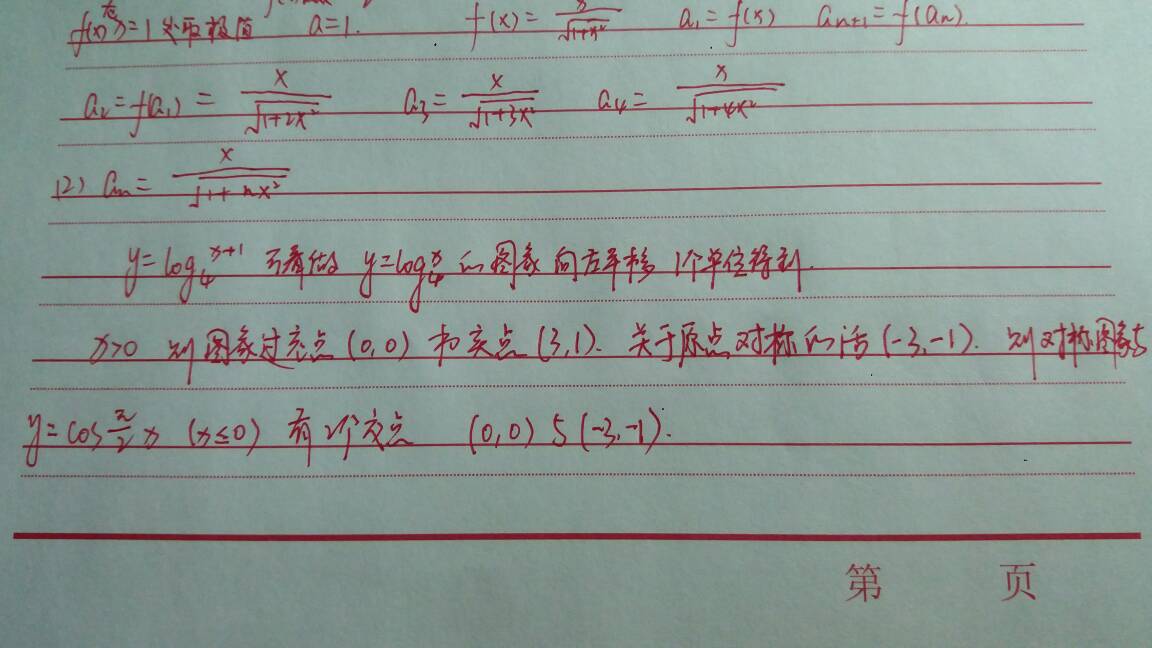 f(x)在x=1处取极值 a=1. f(x)=x/√(1+x²) a₁=f(x) aₙ₊₁=f(aₙ).
a₂=f(a₁)=x/√(1+2x²) a₃=x/√(1+3x²) a₄=x/√(1+4x²)
(2) aₙ=x/√(1+nx²)
y=log₄^(x+1) 可看做 y=log₄^x 的图象向左平移 1个单位得到.
x>0 则图象过 点(0,0) 和 点(3,1). 关于原点对称的话(-3,-1). 则对称图象与
y=cos π/2 x (x≤0) 有2个交点 (0,0)与(-3,-1).
第 页